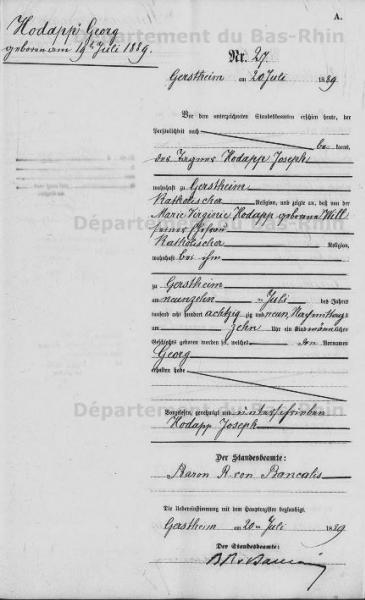 A.
Hodapp Georg
geboren am 19t Juli 1889.
Département du Bas-Rhin
Nr. 27
Gerstheim am 20 Juli 1889
Vor dem unterzeichneten Standesbeamten erschien heute, der
Persönlichkeit nach
be kannt,
der Hodapp Joseph
wohnhaft zu Gerstheim
Katholischer Religion, und zeigte an, daß von der
Marie Virginie Hodapp geborene Will
seiner Ehefrau
Département du Bas-Rhin
Katholischer Religion,
wohnhaft bei ihm
zu Gerstheim
am neunzehn ten Juli des Jahres
tausend acht hundert achtzig zig und neun, Nachmittags
um zehn Uhr ein Kind männlichen
Geschlechts geboren worden sei, welches den Vornamen
Georg
erhalten habe
Département du Bas-Rhin
Vorgelesen, genehmigt und unterschrieben
Hodapp Joseph
Der Standesbeamte:
Baron R. von Bancalis
Die Uebereinstimmung mit dem Hauptregister beglaubigt.
Gerstheim am 20ten Juli 1889
Der Standesbeamte: